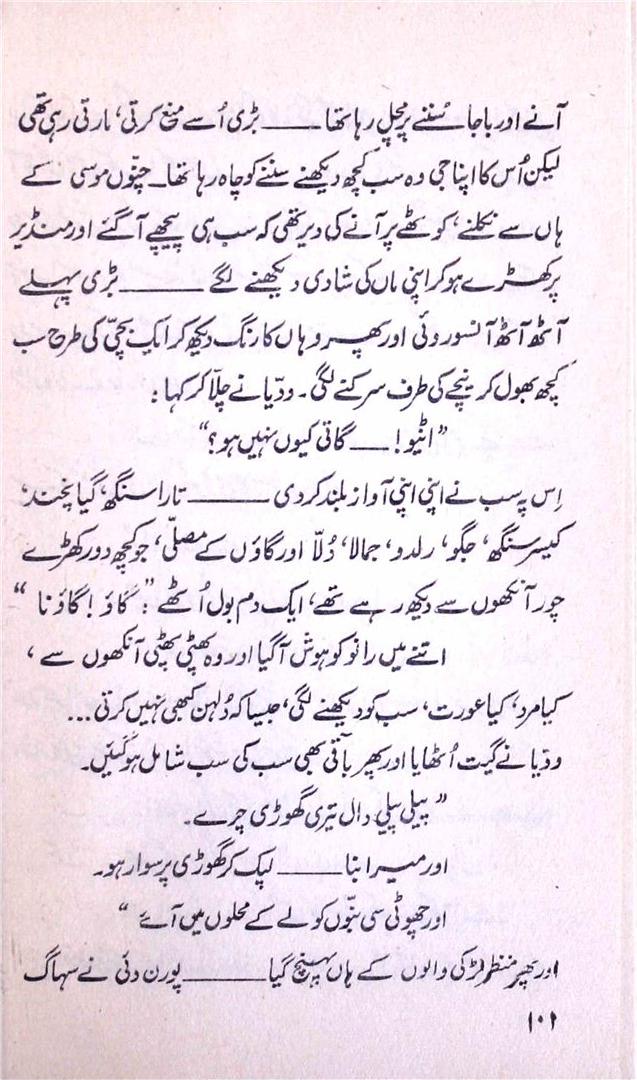 آنے اور باجا سُننے پر مچل رہا تھا ـــــــ بڑی اُسے منع کرتی، مارتی رہی تھی
لیکن اُس کا اپنا جی وہ سب کچھ دیکھنے سننے کو چاہ رہا تھا۔ چنّوں موسی کے
ہاں سے نکلنے، کوٹھے پر آنے کی دیر تھی کہ سب ہی پیچھے آ گئے اور منڈیر
پر کھڑے ہو کر اپنی ماں کی شادی دیکھنے لگے ـــــــ بڑی پہلے
آٹھ آٹھ آنسو روئی اور پھر وہاں کا رنگ دیکھ کر ایک بچّی کی طرح سب
کچھ بھول کر نیچے کی طرف سرکنے لگی۔ ودّیا نے چلّا کر کہا :
”انٹیو! ـــــ گاتی کیوں نہیں ہو؟“
اِس پہ سب نے اپنی اپنی آواز بلند کر دی ـــــــ تارا سنگھ، گیا پنچند،
کیسر سنگھ، جگو، رلدو، جمالا، دُلّا اور گاؤں کے مصلّی، جو کچھ دور کھڑے
چور آنکھوں سے دیکھ رہے تھے، ایک دم بول اُٹھے : ”گاؤ! گاؤ نا“
اتنے میں رانو کو ہوش آ گیا اور وہ پھٹی پھٹی آنکھوں سے ،
کیا مرد، کیا عورت، سب کو دیکھنے لگی، جیسا کہ دُلہن کبھی نہیں کرتی...
ودّیا نے گیت اُٹھایا اور پھر باقی بھی سب کی سب شامل ہو گئیں۔
”پیلی پیلی دال تیری گھوڑی چرے۔
اور میرا بنا ـــــــ لپک کر گھوڑی پر سوار ہو۔
اور چھوٹی سی بنّوں کو لے کے محلوں میں آئے“
اور پھر منظر لڑکی والوں کے ہاں پہنچ گیا ـــــــ پورن دئی نے سہاگ
۱۰۱